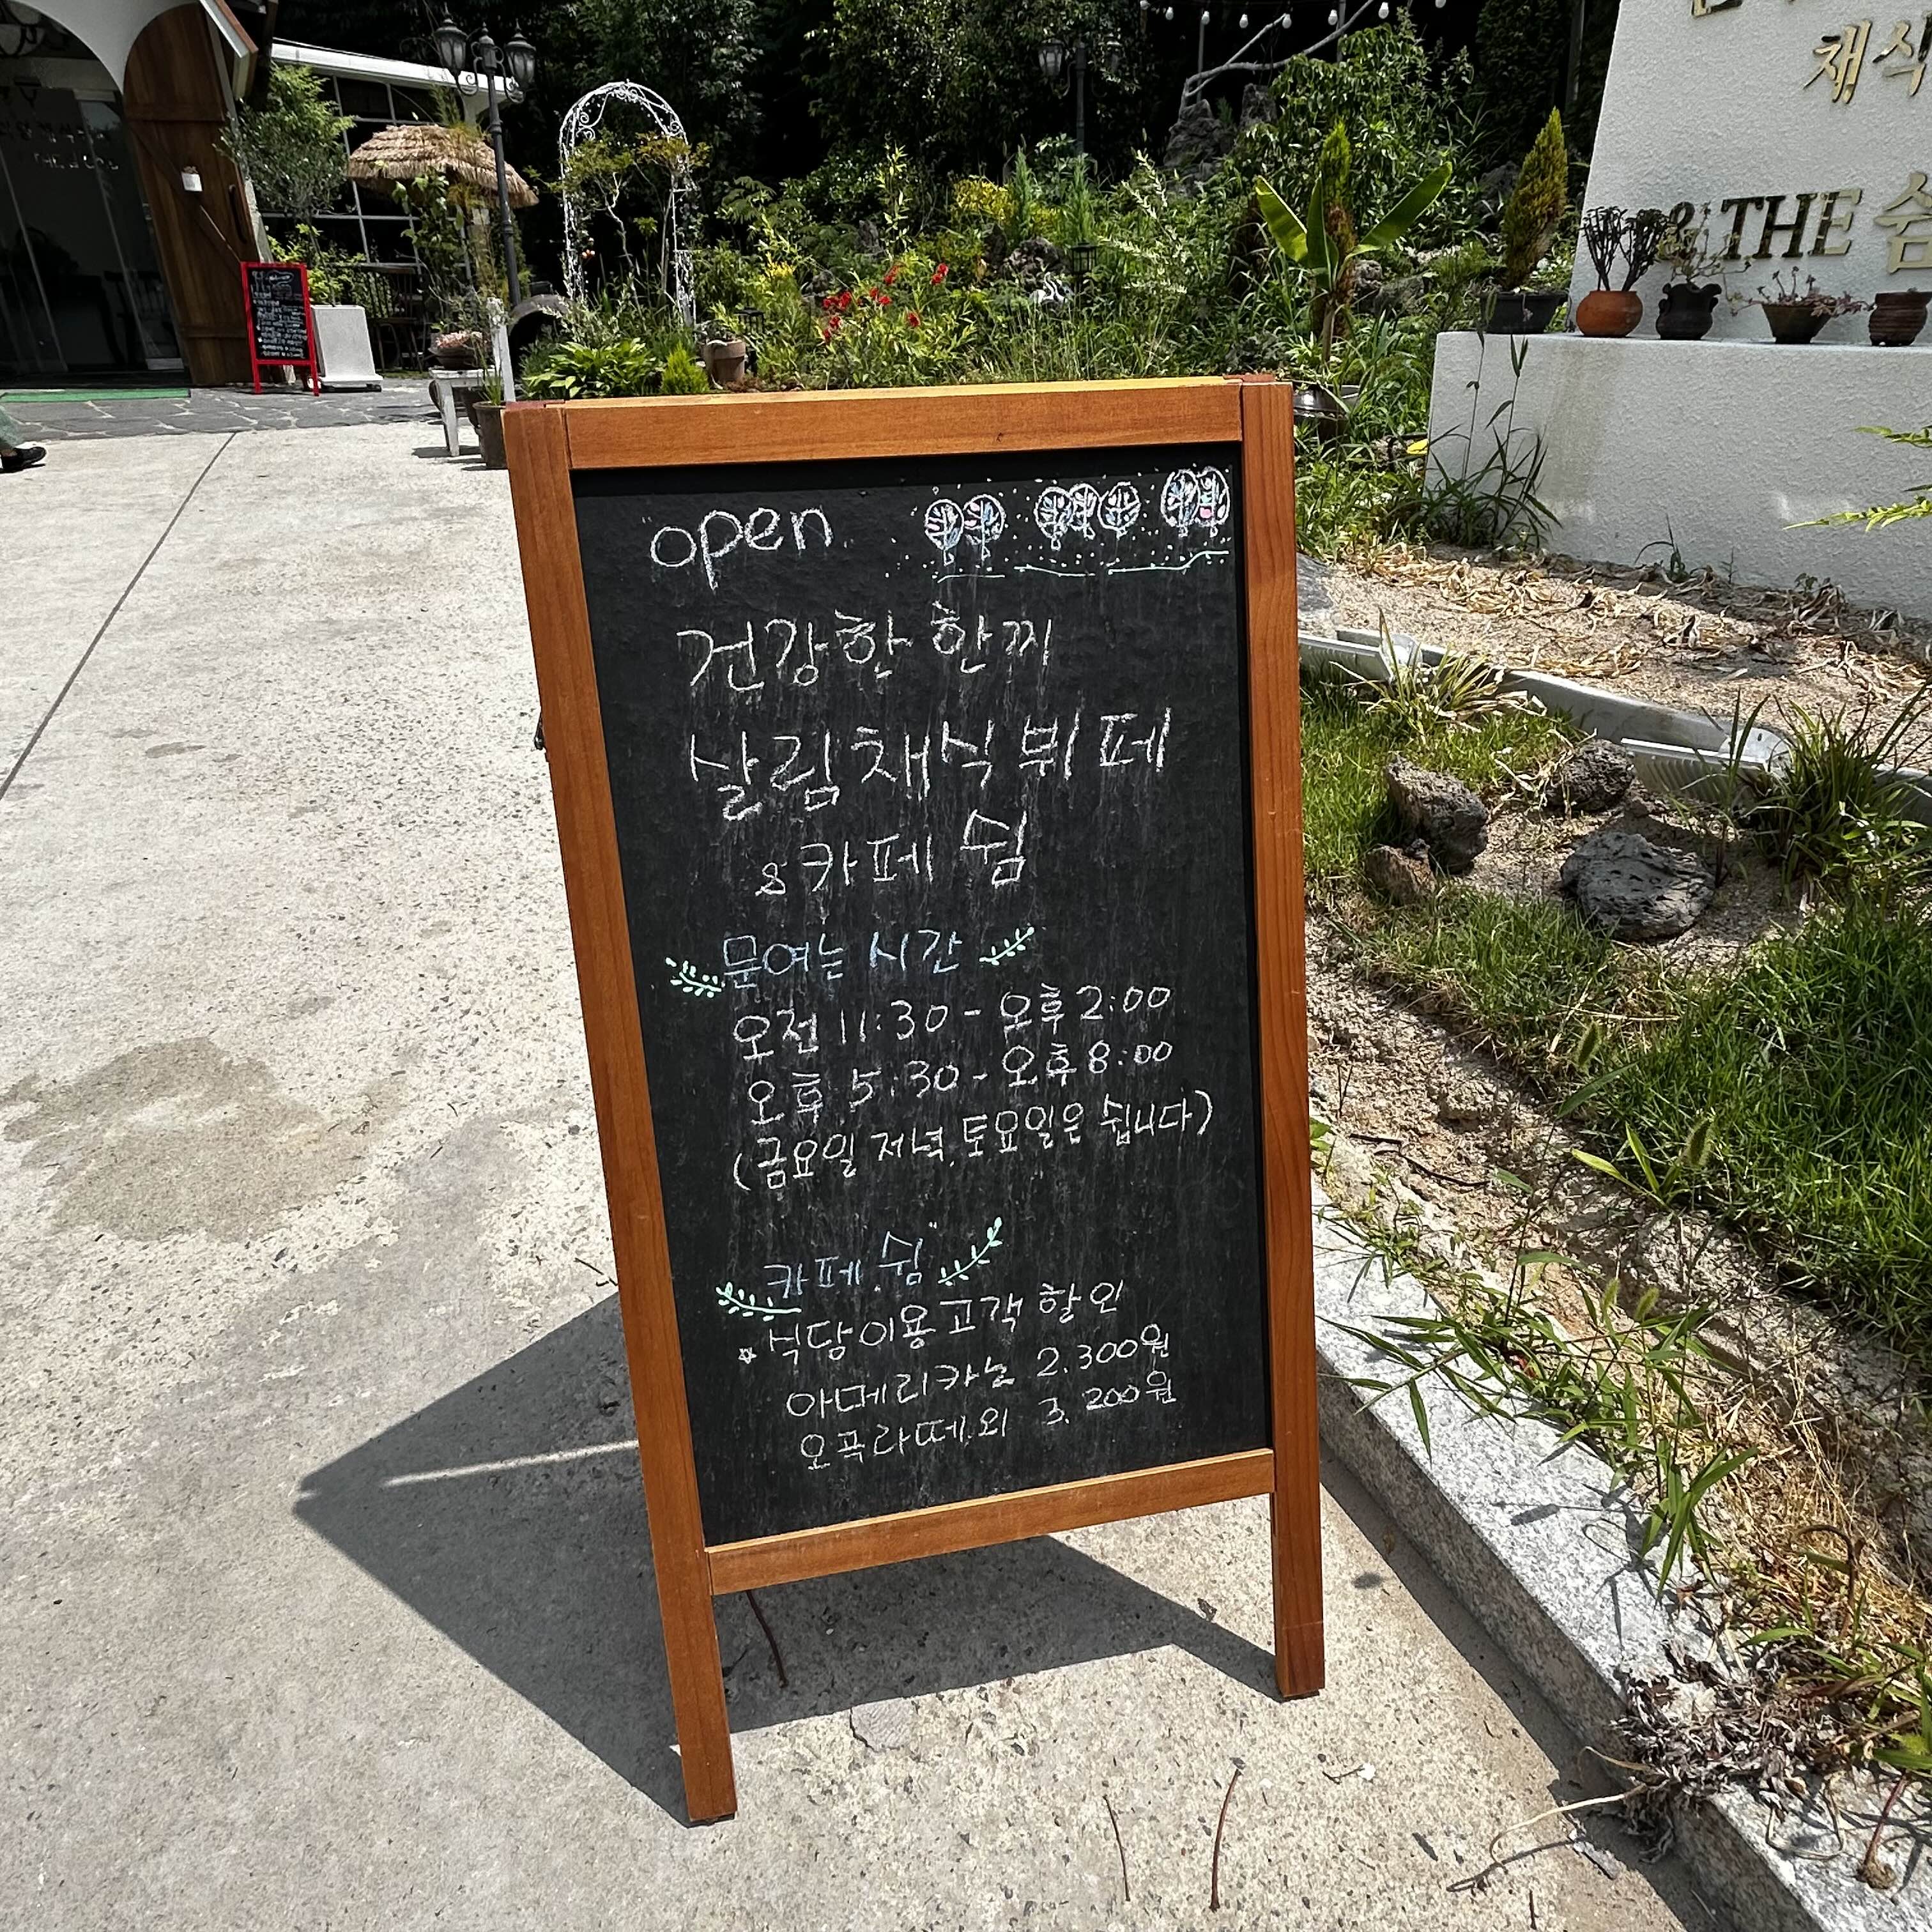 채식
& THE 쉼
open
건강한 한끼
살림채식뷔페
&카페 쉼
문여는 시간
오전 11:30 - 오후 2:00
오후 5:30 - 오후 8:00
(금요일 저녁, 토요일은 쉽니다)
카페 쉼"
식당이용고객 할인
아메리카노 2.300원
오곡라떼.외 3.200원